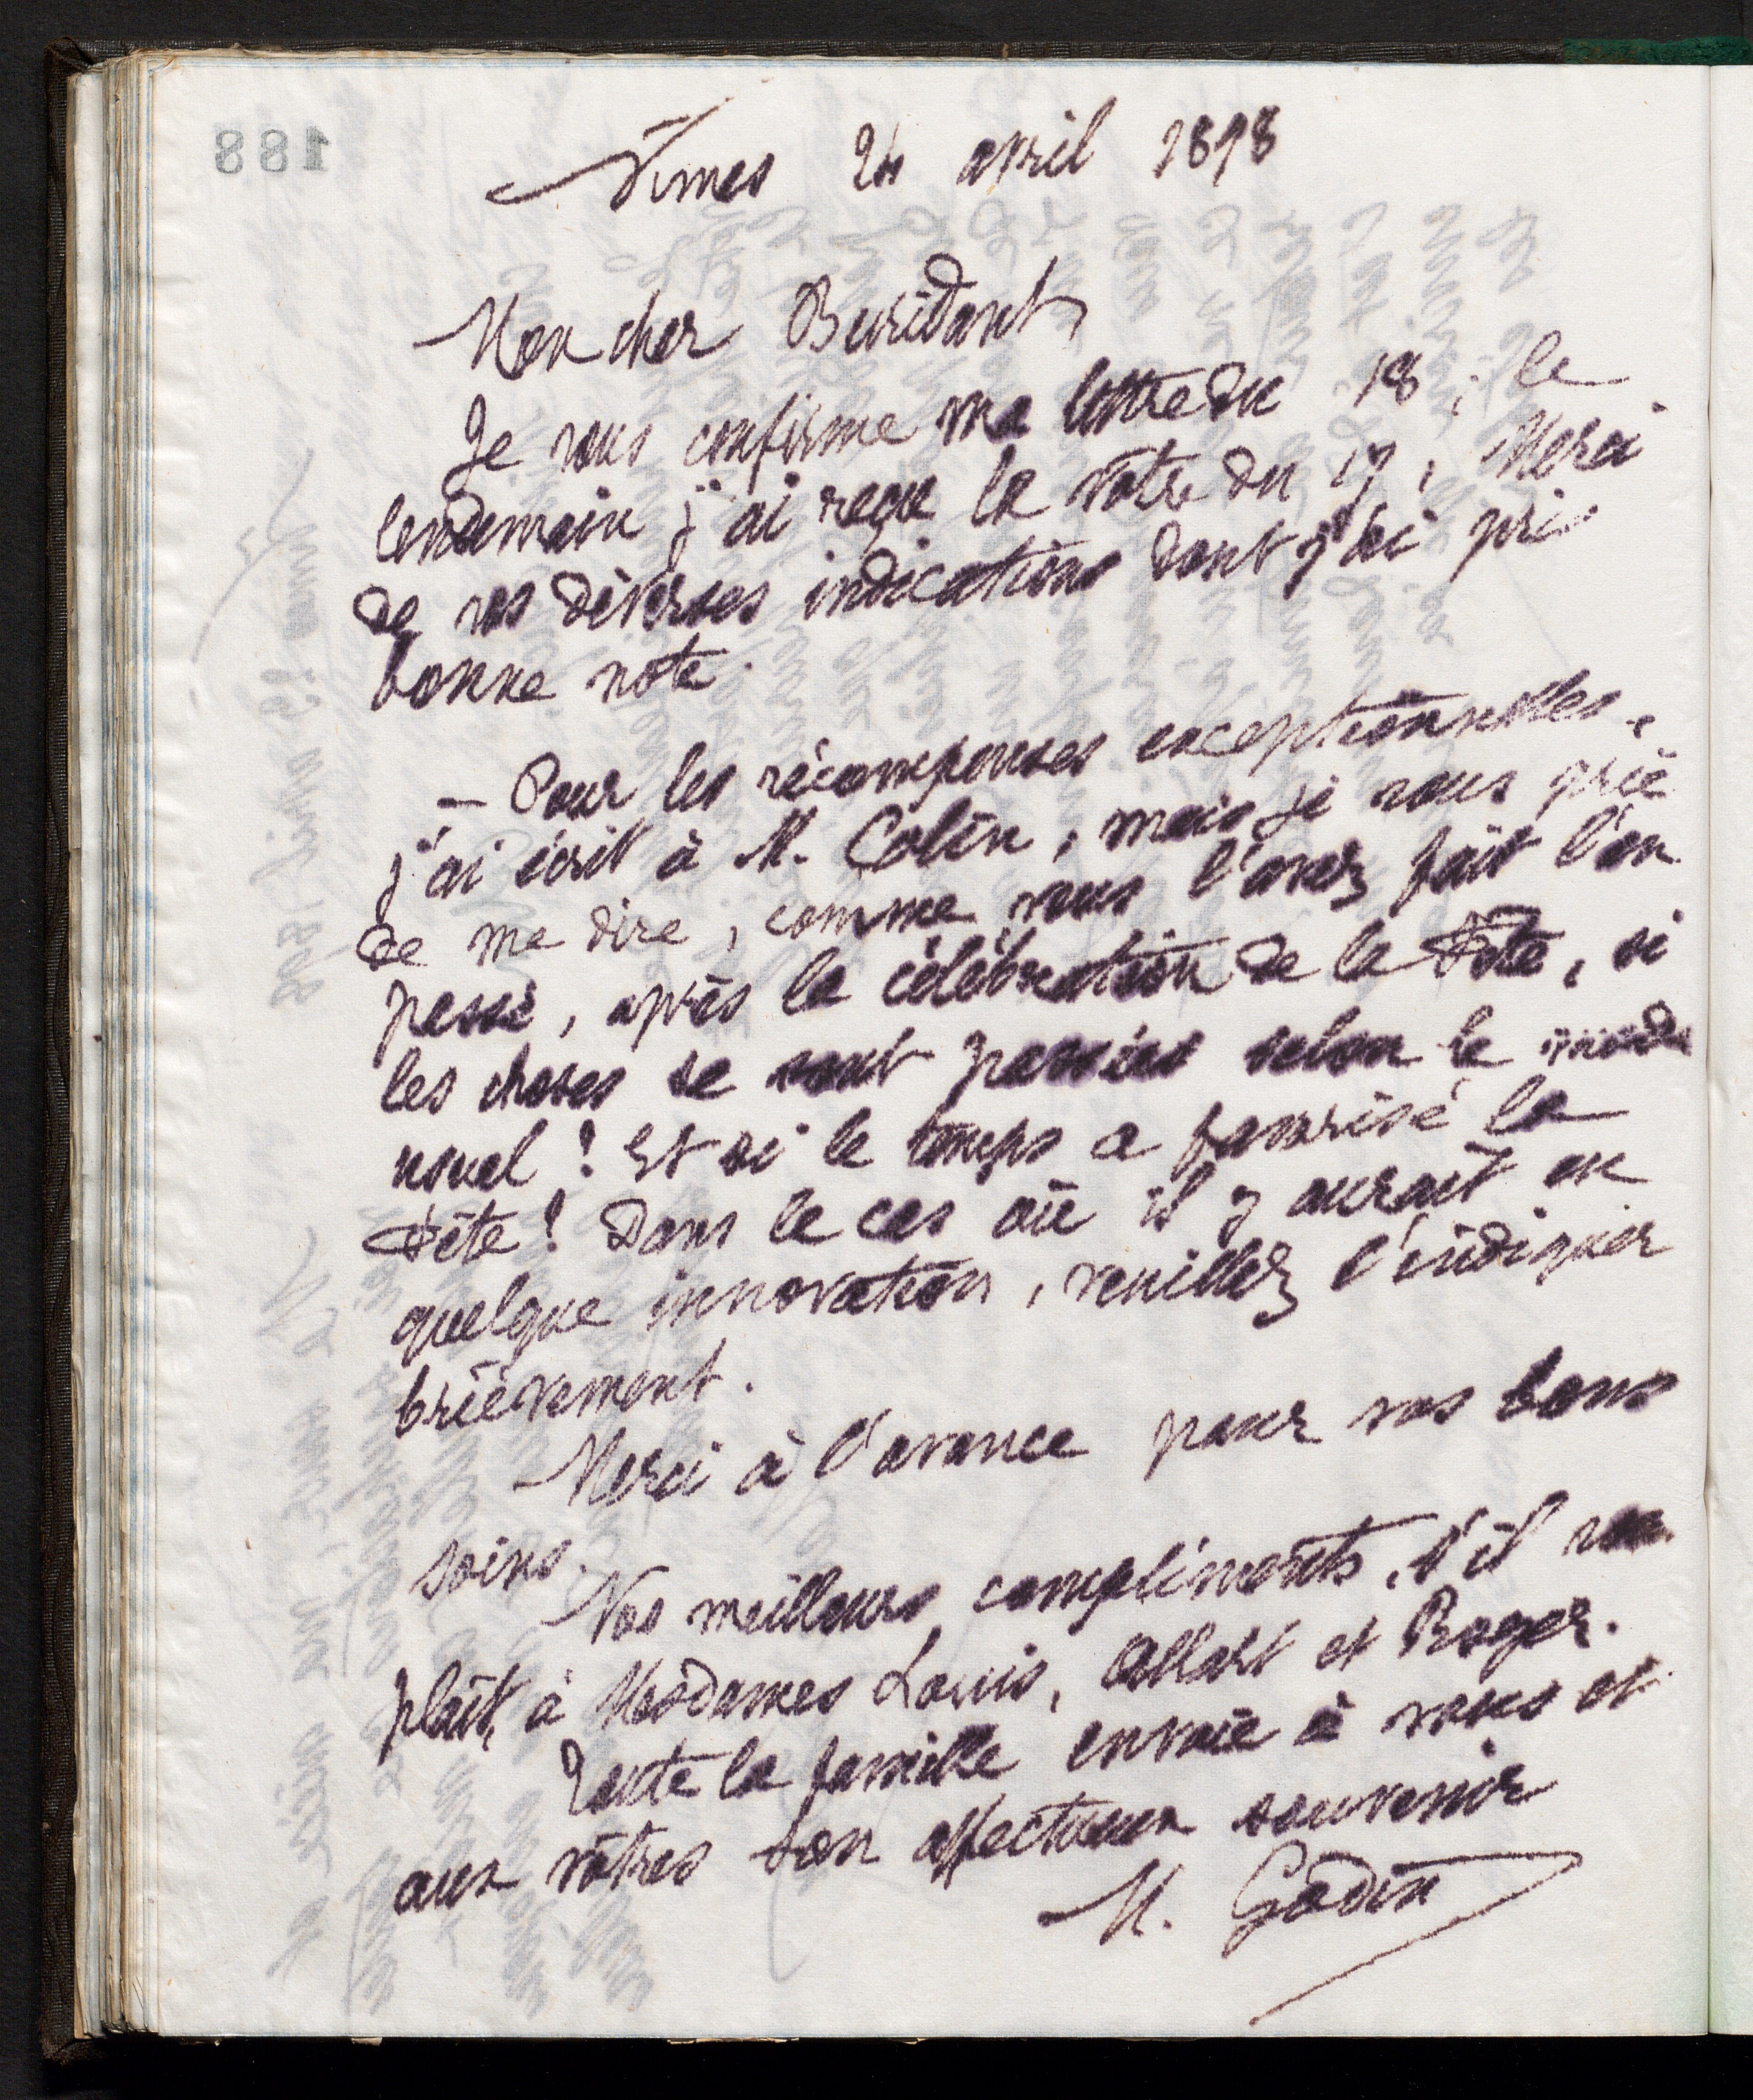 188
Nimes 24 avril 1898
Mon cher Buridant,
Je vous confirme ma lettre du 18 ; le
lendemain j'ai reçu la vôtre du 17. Merci
de vos diverses indications dont j'ai pris
bonne note.
— Pour les récompenses exceptionnelles,
j'ai écrit à M. Colin, mais je vous prie
de me dire, comme vous l'avez fait l'an
passé, après la célébration de la Fête, si
les choses se sont passées selon le mode
usuel ? Et si le temps a favorisé la
Fête ? Dans le cas où il y aurait eu
quelque innovation, veuillez l'indiquer
brièvement.
Merci à l'avance pour vos bons
soins.
Nos meilleurs compliments, s'il vous
plaît, à Mesdames Louis, Allart et Roger.
Toute la famille envoie à vous et
aux vôtres son affectueux souvenir
M. Godin